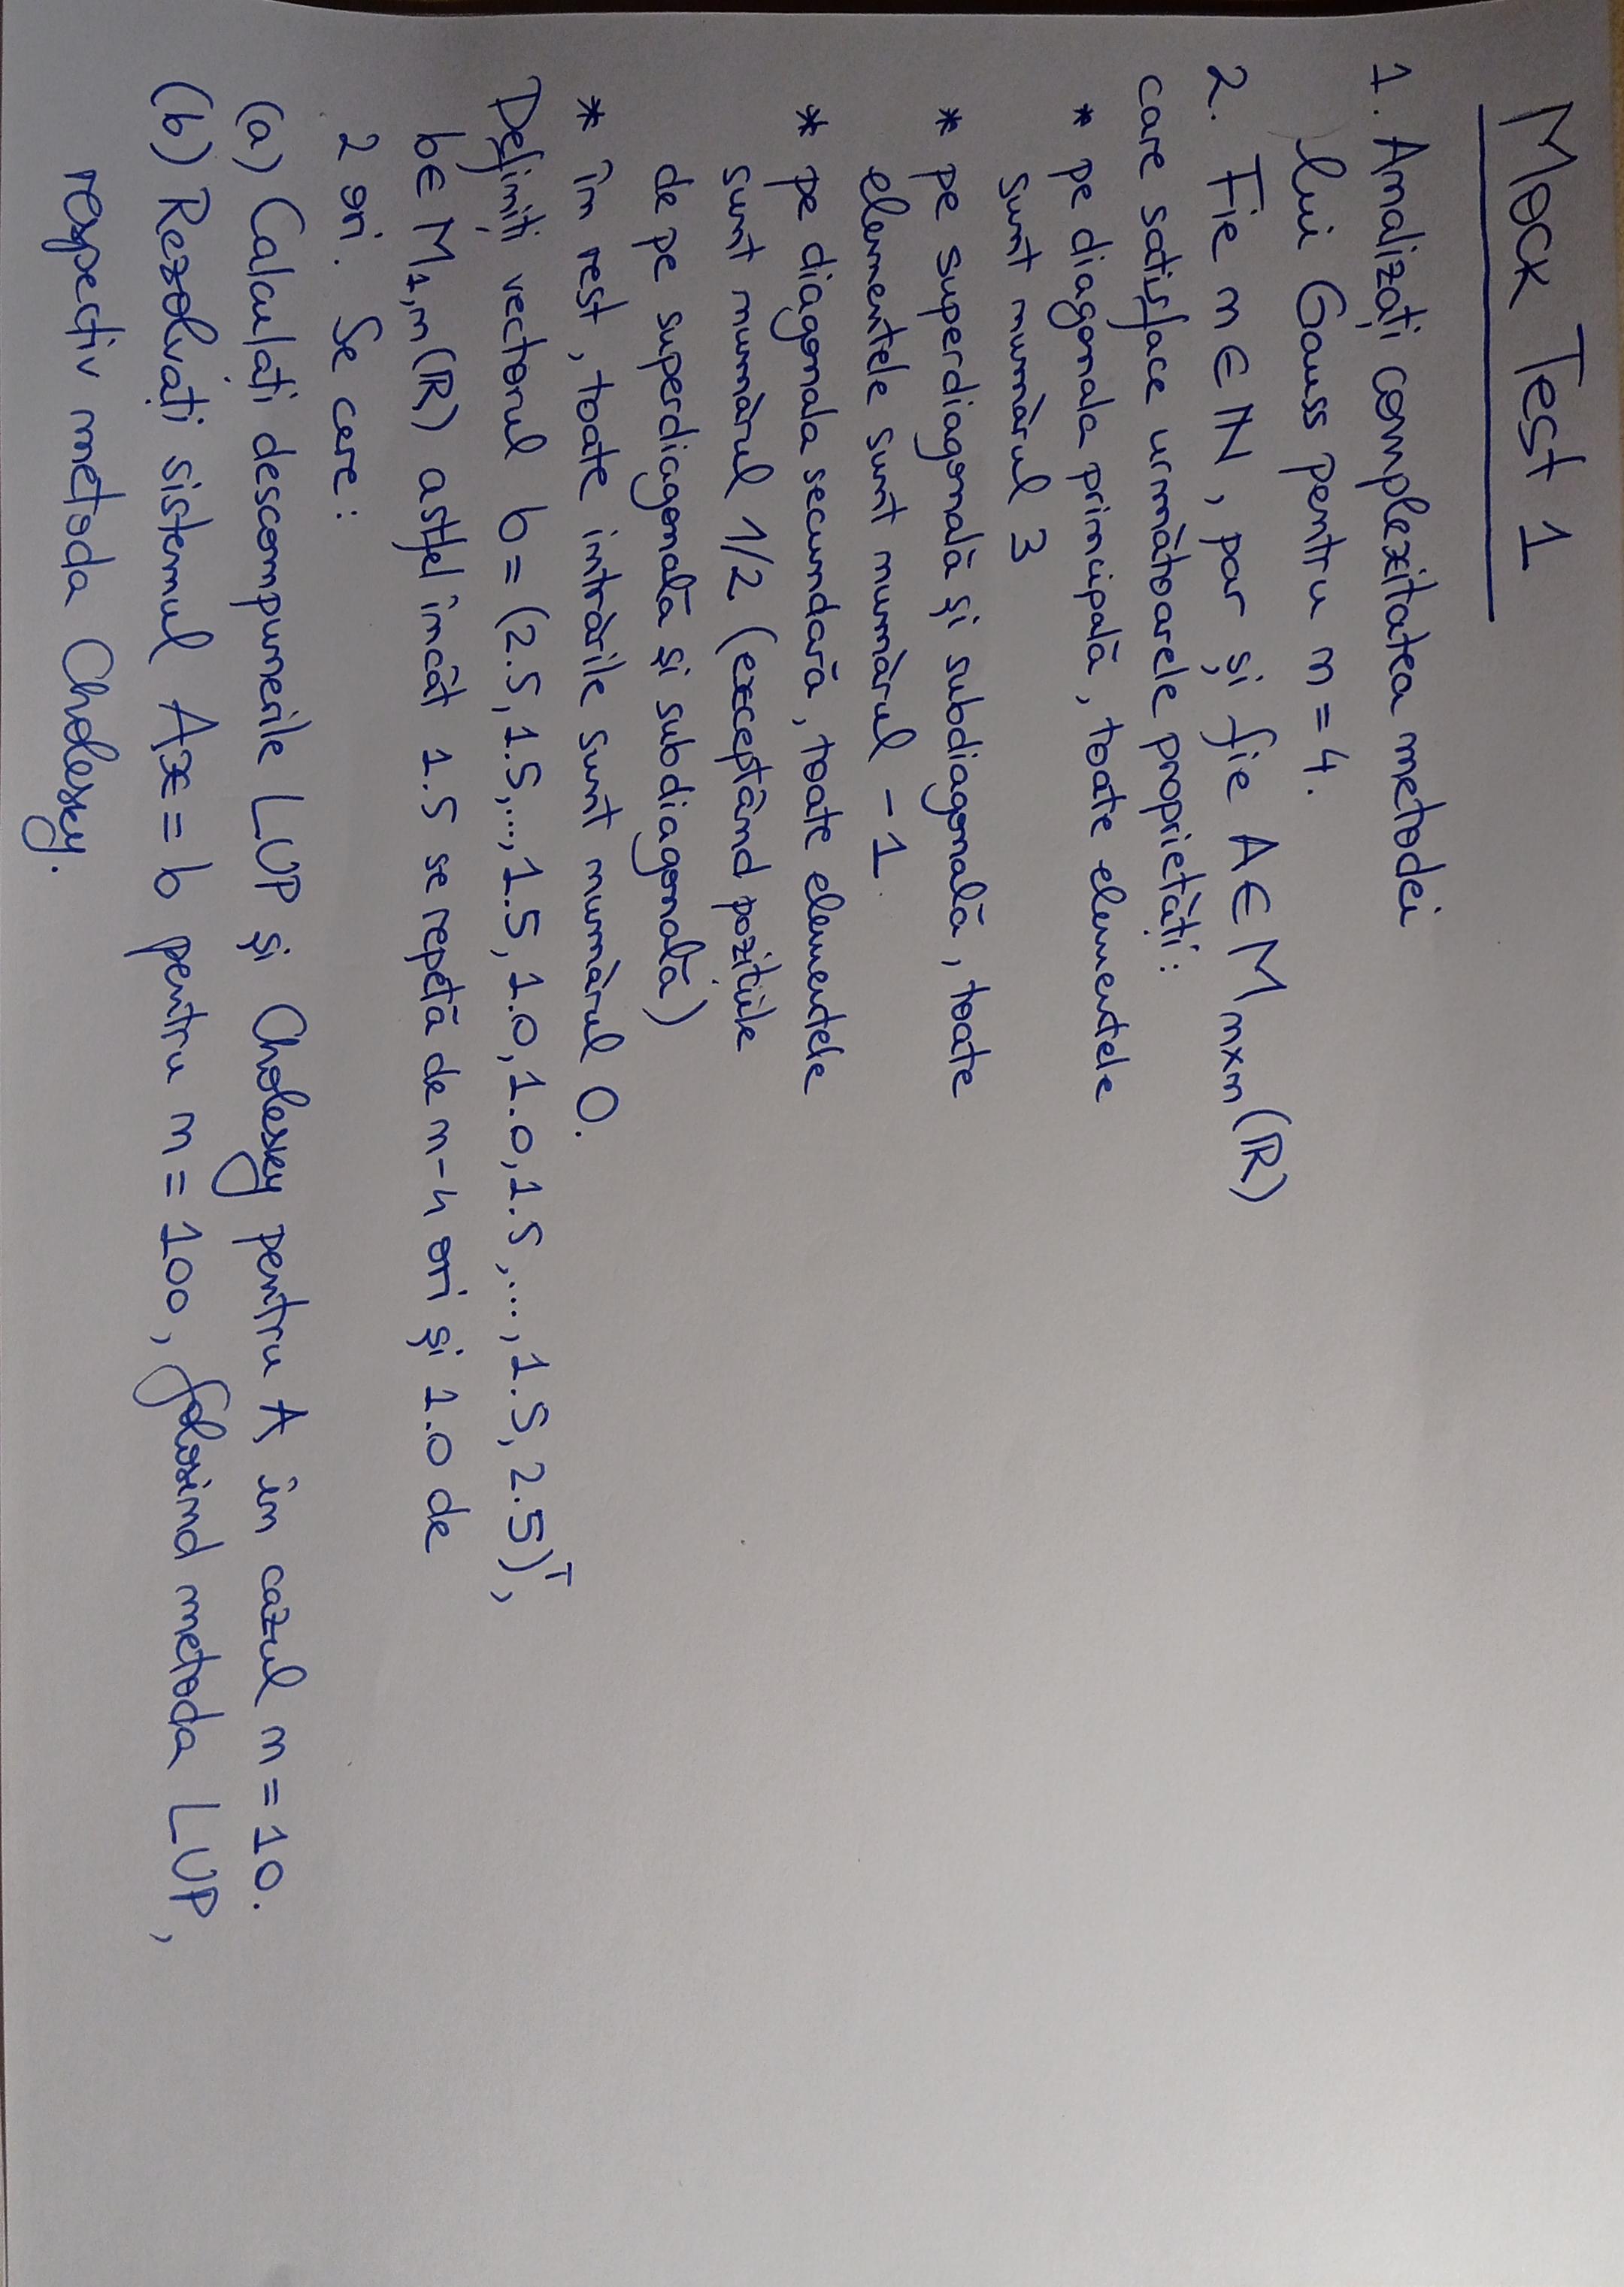 Mock Test 1
1. Analizați complexitatea metodei
lui Gauss pentru n = 4.
2. Fie n ∈ ℕ, par și fie A ∈ M_{n×n}(ℝ)
care satisface următoarele proprietăți:
* pe diagonala principală, toate elementele
sunt numărul 3
* pe superdiagonală și subdiagonală, toate
elementele sunt numărul -1
* pe diagonala secundară, toate elementele
sunt numărul 1/2 (exceptând pozițiile
de pe superdiagonală și subdiagonală)
* în rest, toate intrările sunt numărul 0.
Definiți vectorul b = (2.5, 1.5, ..., 1.5, 1.0, 1.0, 1.5, ..., 1.5, 2.5)^T,
b ∈ M_{1,n}(ℝ) astfel încât 1.5 se repetă de n-4 ori și 1.0 de
2 ori. Se cere:
(a) Calculați descompunerile LUP și Cholesky pentru A în cazul n = 10.
(b) Rezolvați sistemul Ax = b pentru n = 100, folosind metoda LUP,
respectiv metoda Cholesky.